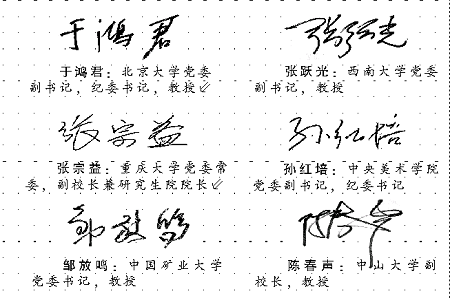 于鸿君 张跃光
于鸿君：北京大学党委 张跃光：西南大学党委
副书记，纪委书记，教授 副书记，教授
张宗益 孙红培
张宗益：重庆大学党委常 孙红培：中央美术学院
委，副校长兼研究生院院长 党委副书记，纪委书记
邹放鸣 陈春声
邹放鸣：中国矿业大学 陈春声：中山大学副
党委书记，教授 校长，教授